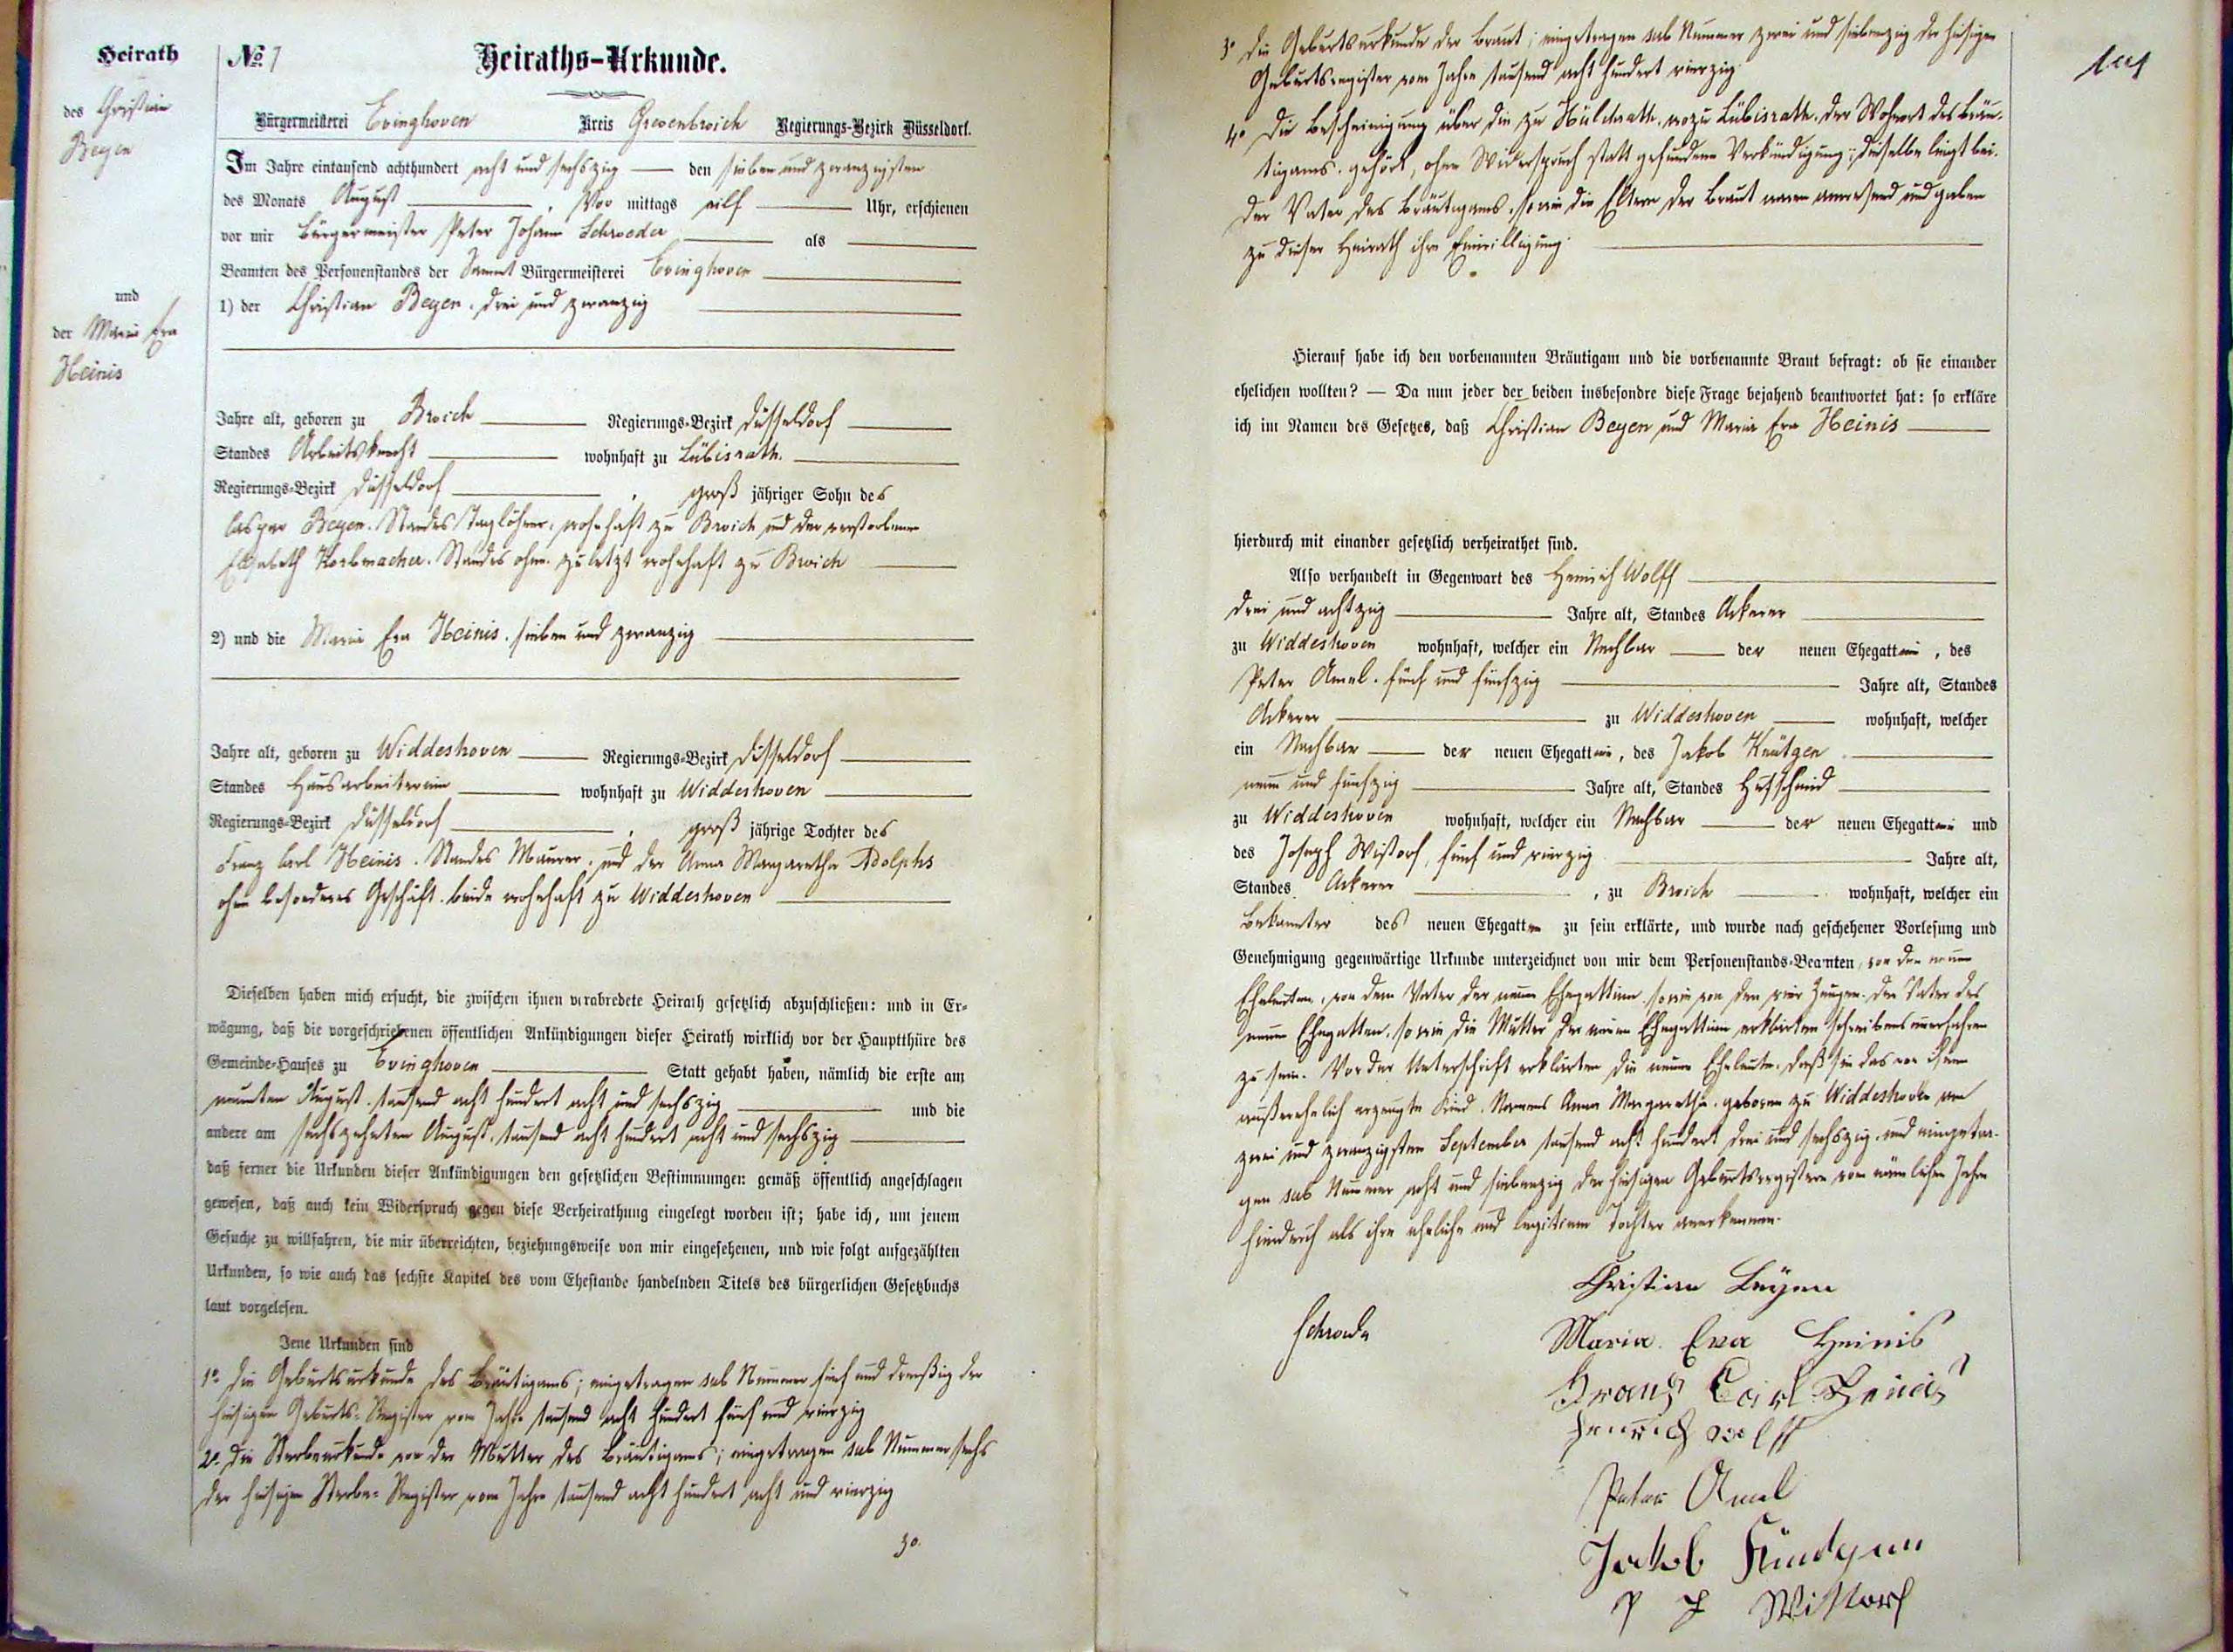 Heirath
des Christian
Beyen
und
der Maria Eva
Heinis
No. 7
Heiraths-Urkunde.
Bürgermeisterei Evinghoven Kreis Grevenbroich Regierungs-Bezirk Düsseldorf.
Im Jahre eintausend achthundert acht und sechszig — den sieben und zwanzigsten
des Monats August —, Vor mittags eilf — Uhr, erschienen
vor mir Bürgermeister Peter Johann Schroeder — als —
Beamten des Personenstandes der Sammt Bürgermeisterei Evinghoven —
1) der Christian Beyen, drei und zwanzig —
Jahre alt, geboren zu Broich — Regierungs-Bezirk Düsseldorf —
Standes Arbeitsknecht — wohnhaft zu Lübisrath. —
Regierungs-Bezirk Düsseldorf —, groß jähriger Sohn des
Caspar Beyen. Standes Taglöhner, wohnhaft zu Broich und der verstorbenen
Elisabeth Korbmacher. Standes ohne. zuletzt wohnhaft zu Broich —
2) und die Maria Eva Heinis. sieben und zwanzig —
Jahre alt, geboren zu Widdeshoven — Regierungs-Bezirk Düsseldorf —
Standes Hausarbeiterin — wohnhaft zu Widdeshoven —
Regierungs-Bezirk Düsseldorf —, groß jährige Tochter des
Franz Carl Heinis. Standes Maurer, und der Anna Margaretha Adolphs
ohne besonderes Geschäft. beide wohnhaft zu Widdeshoven —
Dieselben haben mich ersucht, die zwischen ihnen verabredete Heirath gesetzlich abzuschließen: und in Er-
wägung, daß die vorgeschriebenen öffentlichen Ankündigungen dieser Heirath wirklich vor der Hauptthüre des
Gemeinde-Hauses zu Evinghoven — Statt gehabt haben, nämlich die erste am
neunten August. tausend acht hundert acht und sechszig — und die
andere am sechszehnten August, tausend acht hundert acht und sechszig —
daß ferner die Urkunden dieser Ankündigungen den gesetzlichen Bestimmungen gemäß öffentlich angeschlagen
gewesen, daß auch kein Widerspruch gegen diese Verheirathung eingelegt worden ist; habe ich, um jenem
Gesuche zu willfahren, die mir überreichten, beziehungsweise von mir eingesehenen, und wie folgt aufgezählten
Urkunden, so wie auch das sechste Kapitel des vom Ehestande handelnden Titels des bürgerlichen Gesetzbuchs
laut vorgelesen.
Jene Urkunden sind
1o die Geburtsurkunde des Bräutigams; eingetragen sub Nummer fünf und dreißig der
hiesigen Geburts-Register vom Jahre tausend acht hundert fünf und vierzig
2o die Sterbeurkunde von der Mutter des Bräutigams; eingetragen sub Nummer sechs
der hiesigen Sterbe-Register vom Jahre tausend acht hundert acht und vierzig
3o
3o die Geburtsurkunde der Braut; eingetragen sub Nummer zwei und siebenzig der hiesigen
Geburtsregister vom Jahre tausend acht hundert vierzig
4o Die Bescheinigung über die zu Hülchrath, wozu Lübisrath, der Wohnort des Bräu-
tigams, gehört, ohne Widerspruch statt gefundene Verkündigung; dieselbe liegt bei.
Der Vater des Bräutigams, sowie die Eltern der Braut waren anwesend und gaben
zu dieser Heirath ihre Einwilligung. —
Hierauf habe ich den vorbenannten Bräutigam und die vorbenannte Braut befragt: ob sie einander
ehelichen wollten? — Da nun jeder der beiden insbesondre diese Frage bejahend beantwortet hat: so erkläre
ich im Namen des Gesetzes, daß Christian Beyen und Maria Eva Heinis —
hierdurch mit einander gesetzlich verheirathet sind.
Also verhandelt in Gegenwart des Heinrich Wolff —
drei und achtzig — Jahre alt, Standes Ackerer —
zu Widdeshoven wohnhaft, welcher ein Nachbar — der neuen Ehegattin, des
Peter Amel. fünf und fünfzig — Jahre alt, Standes
Ackerer — zu Widdeshoven — wohnhaft, welcher
ein Nachbar — der neuen Ehegattin, des Jakob Knütgen —
neun und fünfzig — Jahre alt, Standes Hufschmid —
zu Widdeshoven wohnhaft, welcher ein Nachbar — der neuen Ehegattin und
des Joseph Wistorf, fünf und vierzig — Jahre alt,
Standes Ackerer —, zu Broich — wohnhaft, welcher ein
Bekannter des neuen Ehegatten zu sein erklärte, und wurde nach geschehener Vorlesung und
Genehmigung gegenwärtige Urkunde unterzeichnet von mir dem Personenstands-Beamten, von den neuen
Eheleuten, von dem Vater der neuen Ehegattinn, sowie von den vier Zeugen. Der Vater des
neuen Ehegatten, sowie die Mutter der neuen Ehegattinn erklärten schreibens unerfahren
zu sein. Vor der Unterschrift erklärten die neuen Eheleute, daß sie das von ihnen
außerehelich erzeugte Kind, Namens Anna Margaretha, geboren zu Widdeshoven am
zwei und zwanzigsten September tausend acht hundert drei und sechszig, und eingetra-
gen sub Nummer acht und siebenzig der hiesigen Geburtsregistern vom nämlichen Jahre
hierdurch als ihre eheliche und legitime Tochter anerkennen.
Christian Beyen
Schroeder
Maria Eva Heinis
Franz Carl Heinis
Heinrich Wolff
Peter Amel
Jakob Kündgen
P J Wistorf